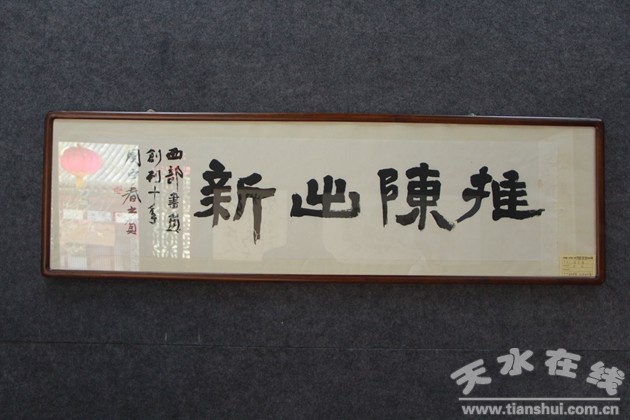 推陳出新
西部書畫
創刊十年
周春
天水在线
www.tianshui.com.cn